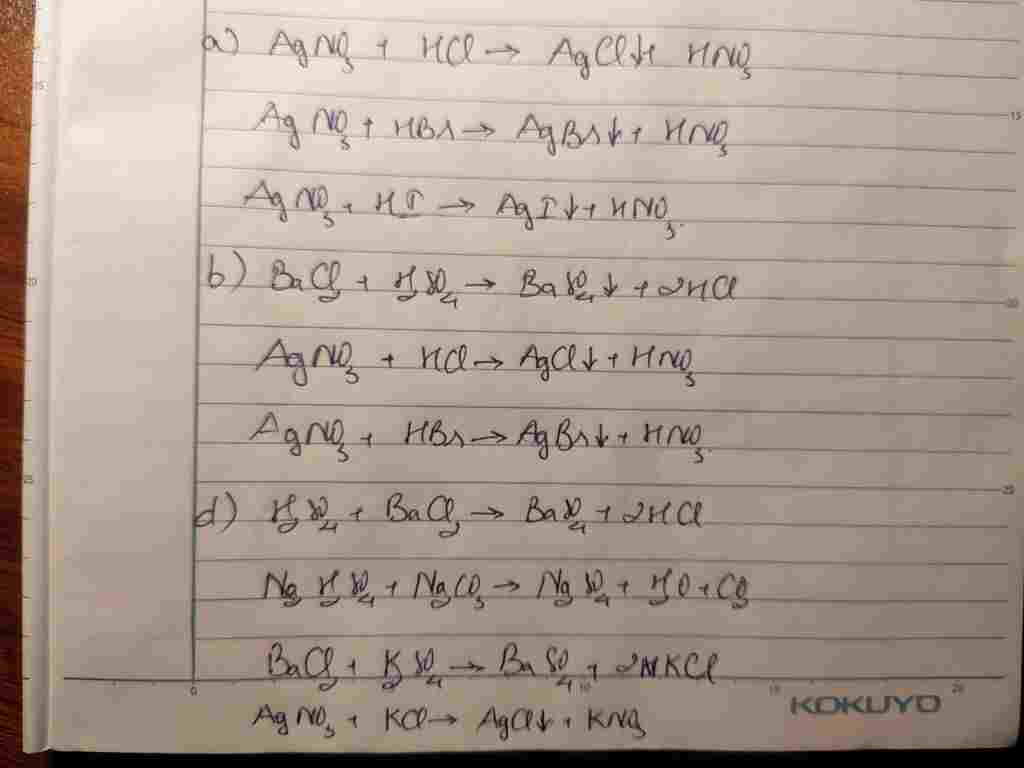 a) AgNO₃ + HCl → AgCl↓+ HNO₃
AgNO₃ + HBr → AgBr↓ + HNO₃
AgNO₃ + HI → AgI↓ + HNO₃.
b) BaCl₂ + H₂SO₄ → BaSO₄↓ + 2HCl
AgNO₃ + HCl → AgCl↓ + HNO₃
AgNO₃ + HBr → AgBr↓ + HNO₃.
d) H₂SO₄ + BaCl₂ → BaSO₄ + 2HCl
Na₂HSO₄ + Na₂CO₃ → Na₂SO₄ + H₂O + CO₂
BaCl₂ + K₂SO₄ → BaSO₄ + 2KCl
AgNO₃ + KCl → AgCl↓ + KNO₃
KOKUYO
15
20
25
15
20
25
0
10
15
20